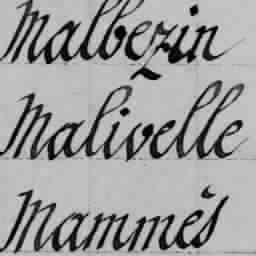 Malbezin
Malivelle
Mammès